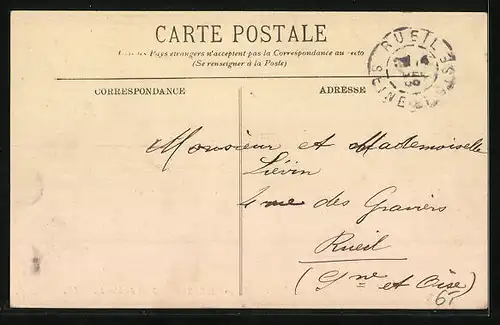 CARTE POSTALE
Tous les Pays étrangers n'acceptent pas la Correspondance au recto
(Se renseigner à la Poste)
RUEIL
SEINE ET OISE
CORRESPONDANCE
ADRESSE
Monsieur et Mademoiselle
Liévin
4 rue des Graviers
Rueil
(Sne et Oise)